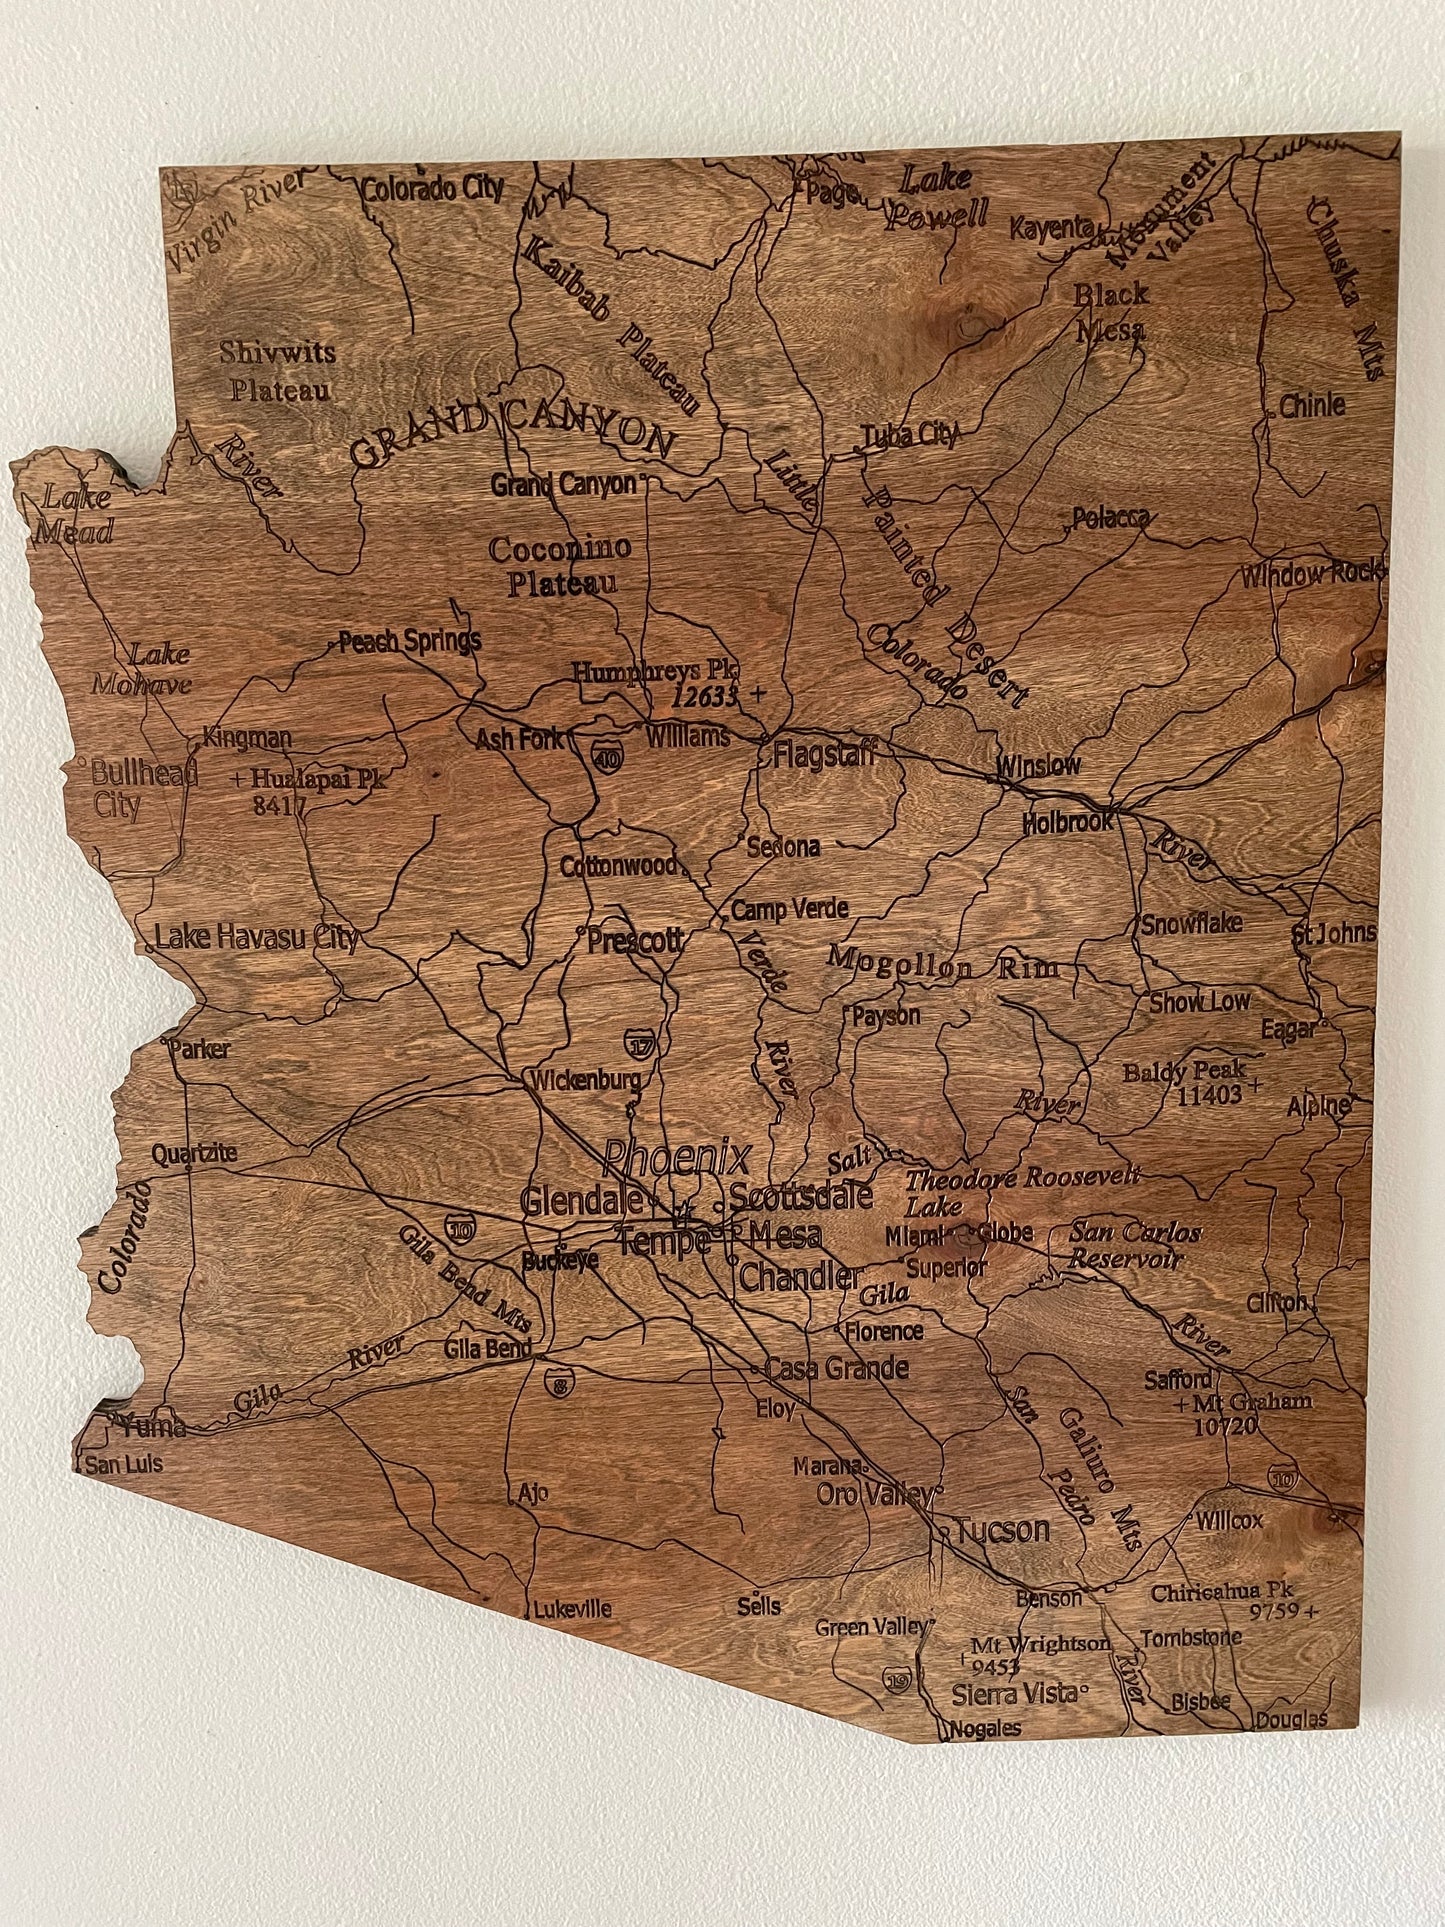 Virgin River
Colorado City
Page
Lake
Powell
Kayenta
Monument
Valley
Chuska Mts
Kaibab Plateau
Black
Mesa
Shivwits
Plateau
GRAND CANYON
Chinle
Tuba City
River
Grand Canyon
Little
Lake
Mead
Painted Desert
Polacca
Coconino
Plateau
Window Rock
Peach Springs
Colorado
Lake
Mohave
Humphreys Pk
12633 +
Kingman
Ash Fork
Williams
40
Flagstaff
Winslow
Bullhead
City
+ Hualapai Pk
8417
Holbrook
River
Sedona
Cottonwood
Camp Verde
Snowflake
St Johns
Lake Havasu City
Prescott
Verde
Mogollon Rim
Show Low
Payson
Eagar
Parker
17
River
Baldy Peak
11403 +
Wickenburg
River
Alpine
Quartzite
Phoenix
Salt
Theodore Roosevelt
Lake
Glendale
Scottsdale
Colorado
10
Tempe
Mesa
Miami
Globe
San Carlos
Reservoir
Gila Bend Mts
Buckeye
Chandler
Superior
Gila
Clifton
Florence
River
River
Gila Bend
Casa Grande
Safford
8
Gila
Eloy
San
+ Mt Graham
10720
Yuma
Galiuro Mts
San Luis
Marana
Pedro
10
Ajo
Oro Valley
Tucson
Willcox
Lukeville
Sells
Benson
Chiricahua Pk
9759 +
Green Valley
Mt Wrightson
+ 9453
Tombstone
19
Sierra Vista
River
Bisbee
Nogales
Douglas